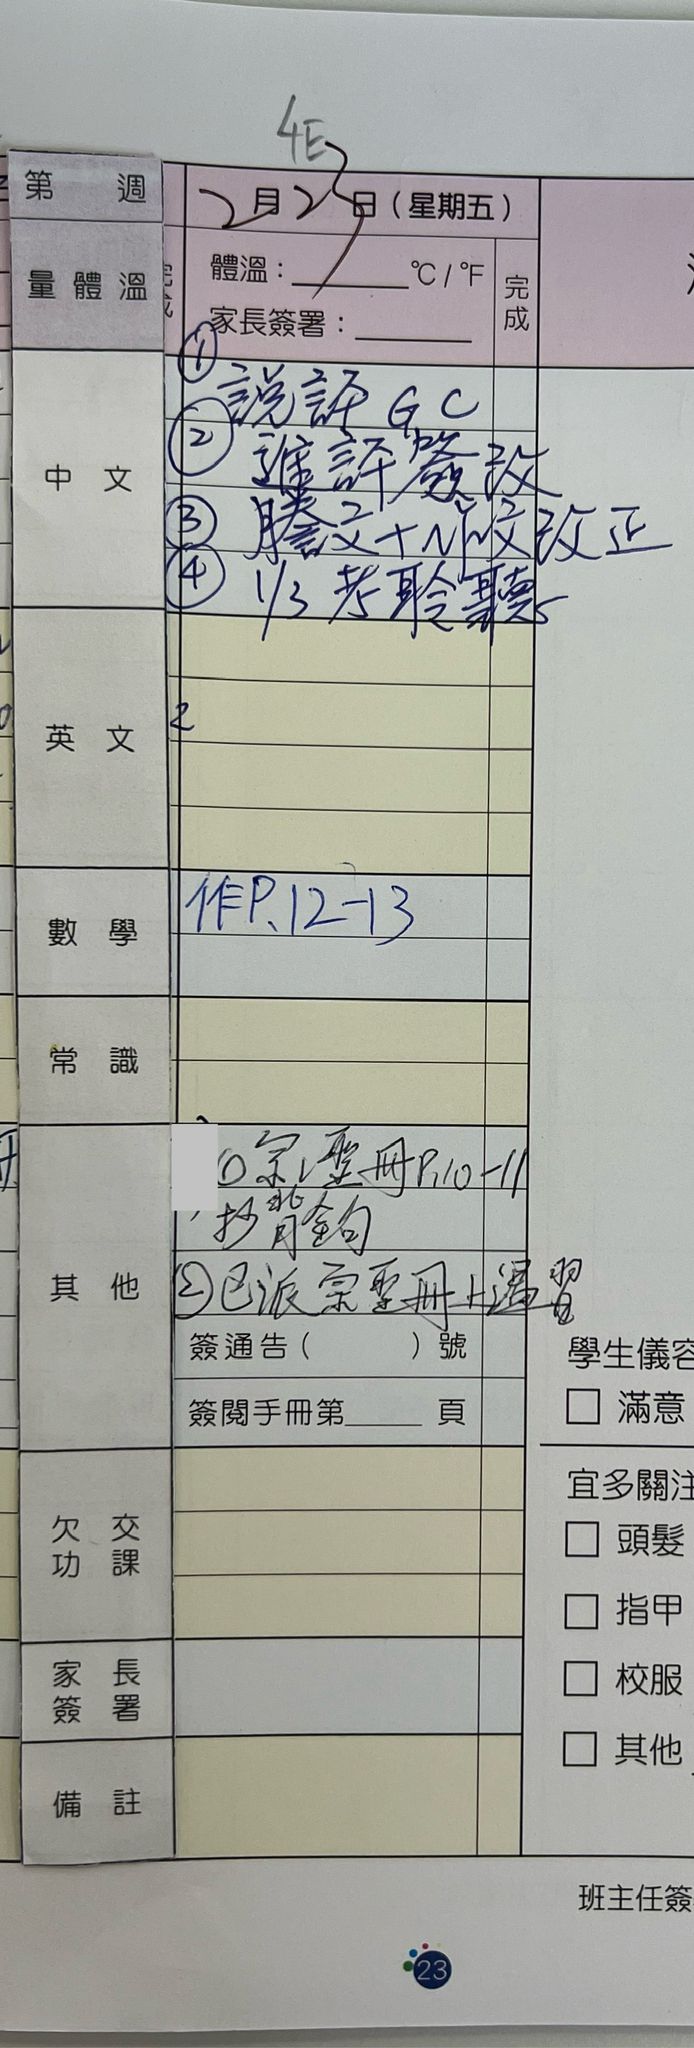 4E
第 週
2月23日（星期五）
量體溫
體溫：______℃/℉
完成
家長簽署：______
中文
① 說話 GC
② 進評簽改
③ 謄文+作文改正
④ 1/3 考聆聽
英文
數學
作P.12-13
常識
其他
① 宗聖冊P.10-11
抄背金句
② 已派宗聖冊上溫習
簽通告（ ）號
簽閱手冊第____頁
欠交功課
家長簽署
備註
學生儀容
□ 滿意
宜多關注
□ 頭髮
□ 指甲
□ 校服
□ 其他
班主任簽
23